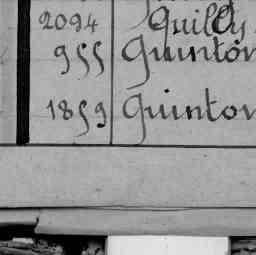 2094 Quilly
955 Quinton
1859 Quinton